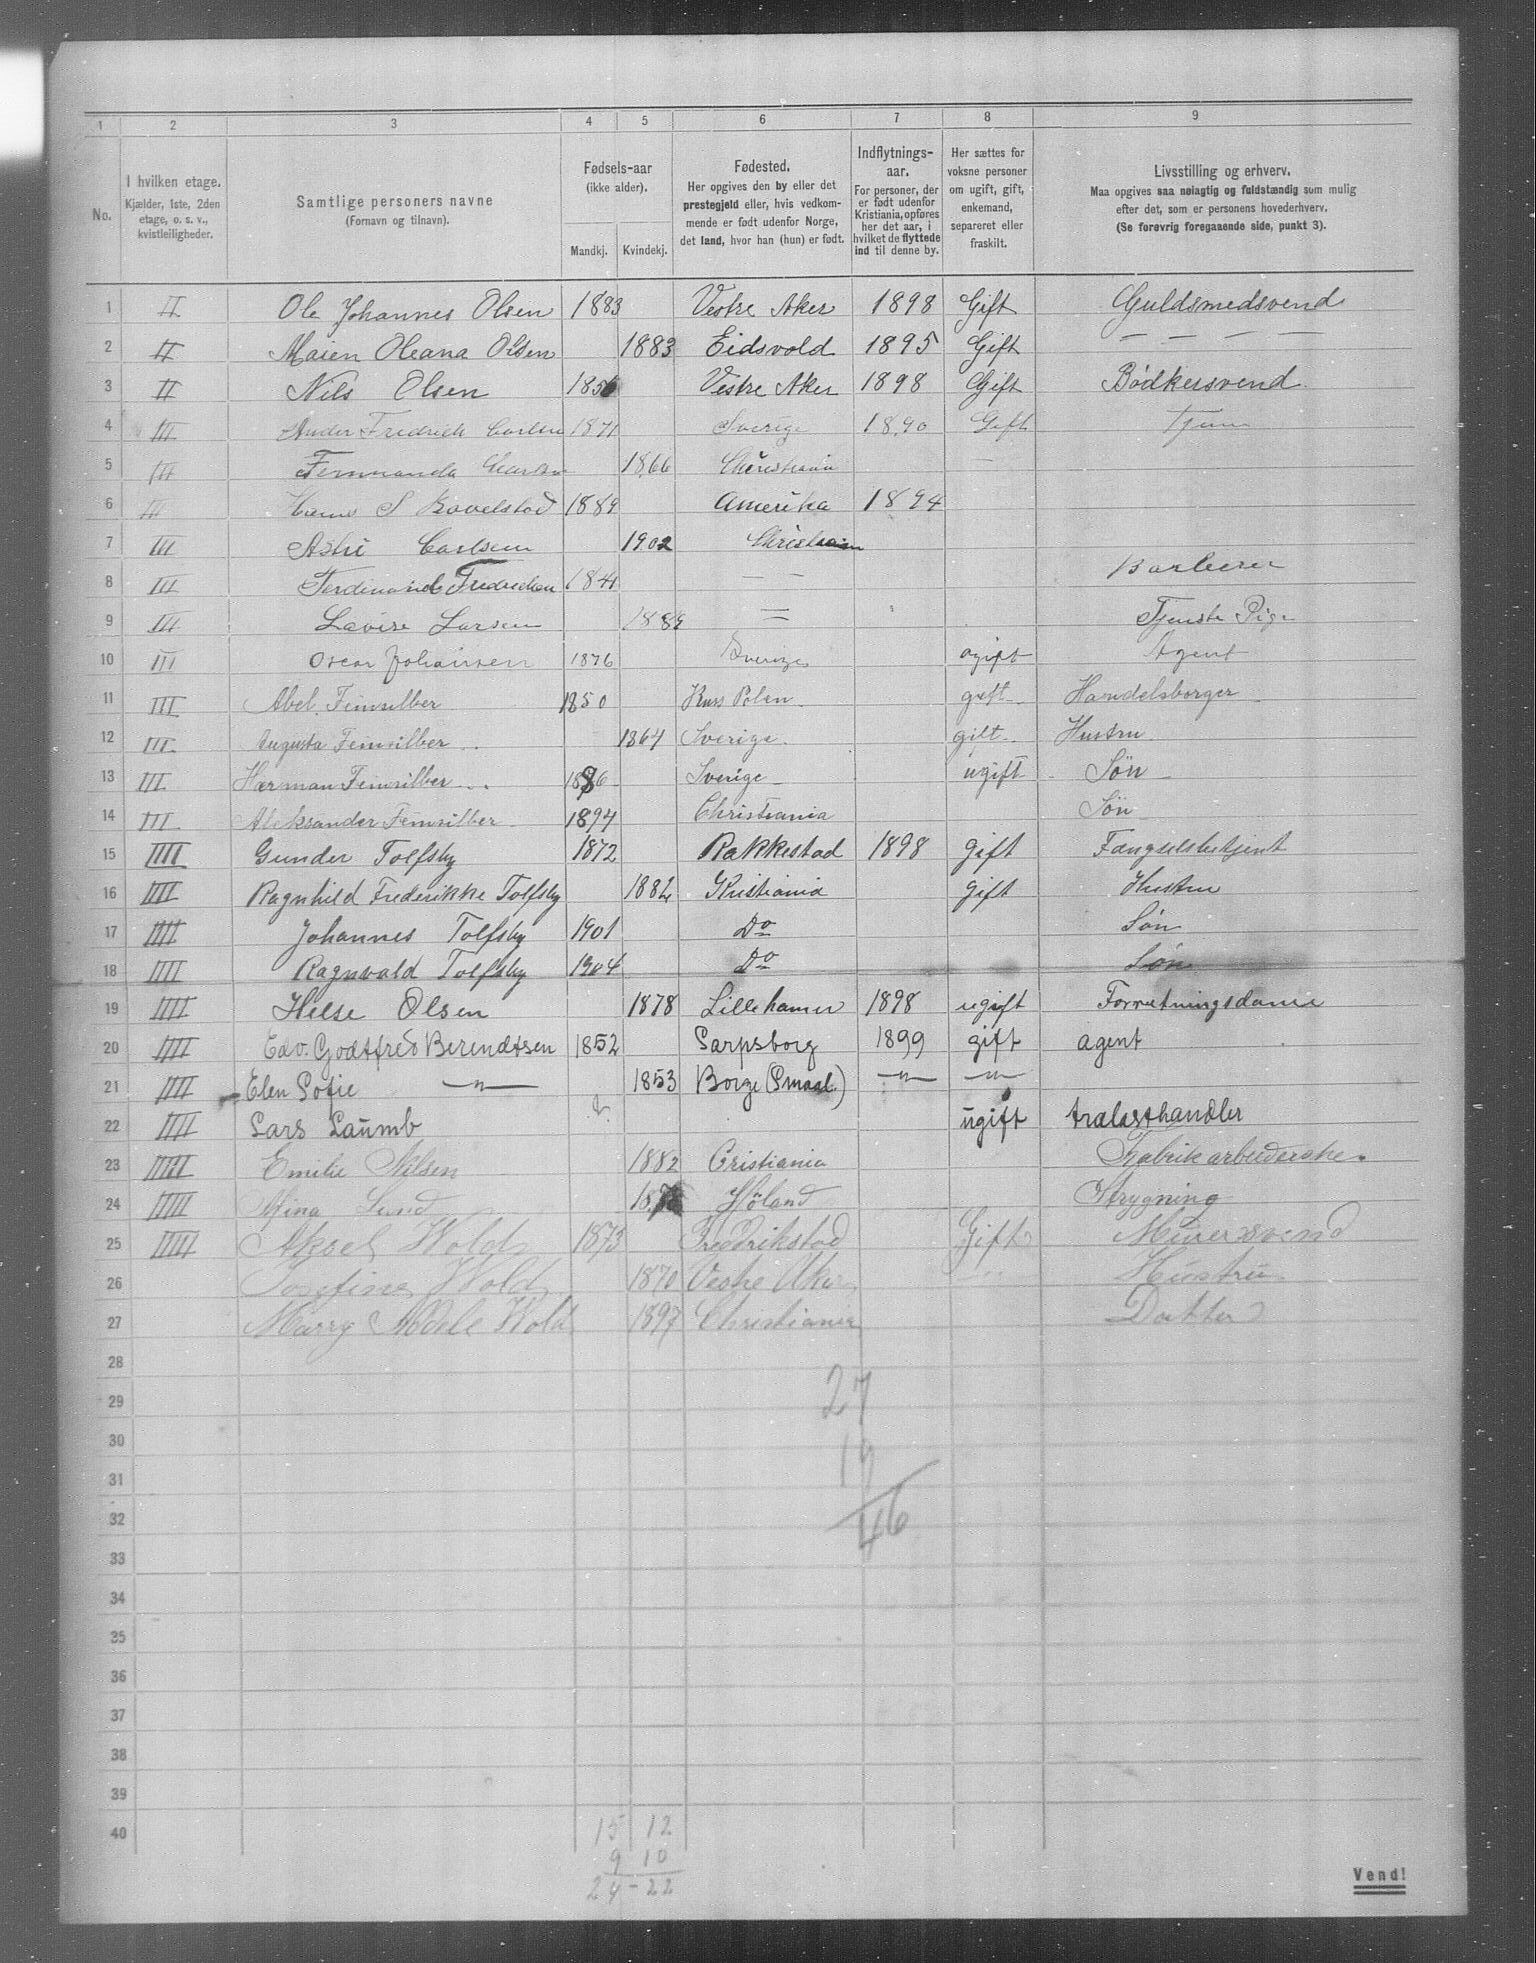 1 2 3 4 5 6 7 8 9
No.
I hvilken etage. Kjælder, 1ste, 2den etage, o. s. v., kvistleiligheder.
Samtlige personers navne (Fornavn og tilnavn).
Fødsels-aar (ikke alder).
Mandkj. Kvindekj.
Fødested. Her opgives den by eller det prestegjeld eller, hvis vedkommende er født udenfor Norge, det land, hvor han (hun) er født.
Indflytnings-aar. For personer, der er født udenfor Kristiania, opføres her det aar, i hvilket de flyttede ind til denne by.
Her sættes for voksne personer om ugift, gift, enkemand, separeret eller fraskilt.
Livsstilling og erhverv. Maa opgives saa nøiagtig og fuldstændig som mulig efter det, som er personens hovederhverv. (Se forøvrig foregaaende side, punkt 3).
1 II Ole Johannes Olsen 1883 Vestre Aker 1898 Gift Guldsmedsvend
2 II Maren Oleana Olsen 1883 Eidsvold 1895 Gift — — —
3 II Nils Olsen 1856 Vestre Aker 1898 Gift Bødkersvend
4 III Fredrick 1871 Sverige 1890 Gift
5 III 1866 Christiania —
6 III Hans S 1889 Amerika 1894
7 III Carlsen 1902
8 III 18 — — Barberer
9 III Larsen 188 = Tjeneste Pige
10 III Oscar Johansen 1876 Sverige ugift Agent
11 III Abel Feinsilber 1850 Russ Polen gift Handelsborger
12 III Augusta Feinsilber 1864 Sverige gift Hustru
13 III Herman Feinsilber 1886 Sverige ugift Søn
14 III Aleksander Feinsilber 1894 Christiania Søn
15 IIII Gunder Tolfsby 1872 Rakkestad 1898 gift Fængselsbetjent
16 IIII Ragnhild Frederikke Tolfsby 1882 Kristiania gift Hustru
17 IIII Johannes Tolfsby 1901 Do Søn
18 IIII Ragnvald Tolfsby 1904 Do Søn
19 IIII Helse Olsen 1878 Lillehamer 1898 ugift Forretningsdame
20 IIII Edv. Godtfred Berendtsen 1852 Sarpsborg 1899 gift agent
21 IIII Elen Sofie —"— 1853 Borge (Smaal) —"— —"—
22 IIII Lars Laumb ugift trælasthandler
23 IIIII Emilie Nilsen 1882 Cristiania Fabrikarbeiderske.
24 IIIII Mina Lund 18 Høland Strygning
25 IIIII Aksel Wold 1873 Fredrikstad Gift Murersvend
26 Josefine Wold 1870 Vestre Aker Hustru
27 Marry Adele Wold 1897 Christiania Datter
28
29 27
30
31 19
32 46
33
34
35
36
37
38
39
40 15 12
9 10
24 - 22
Vend!